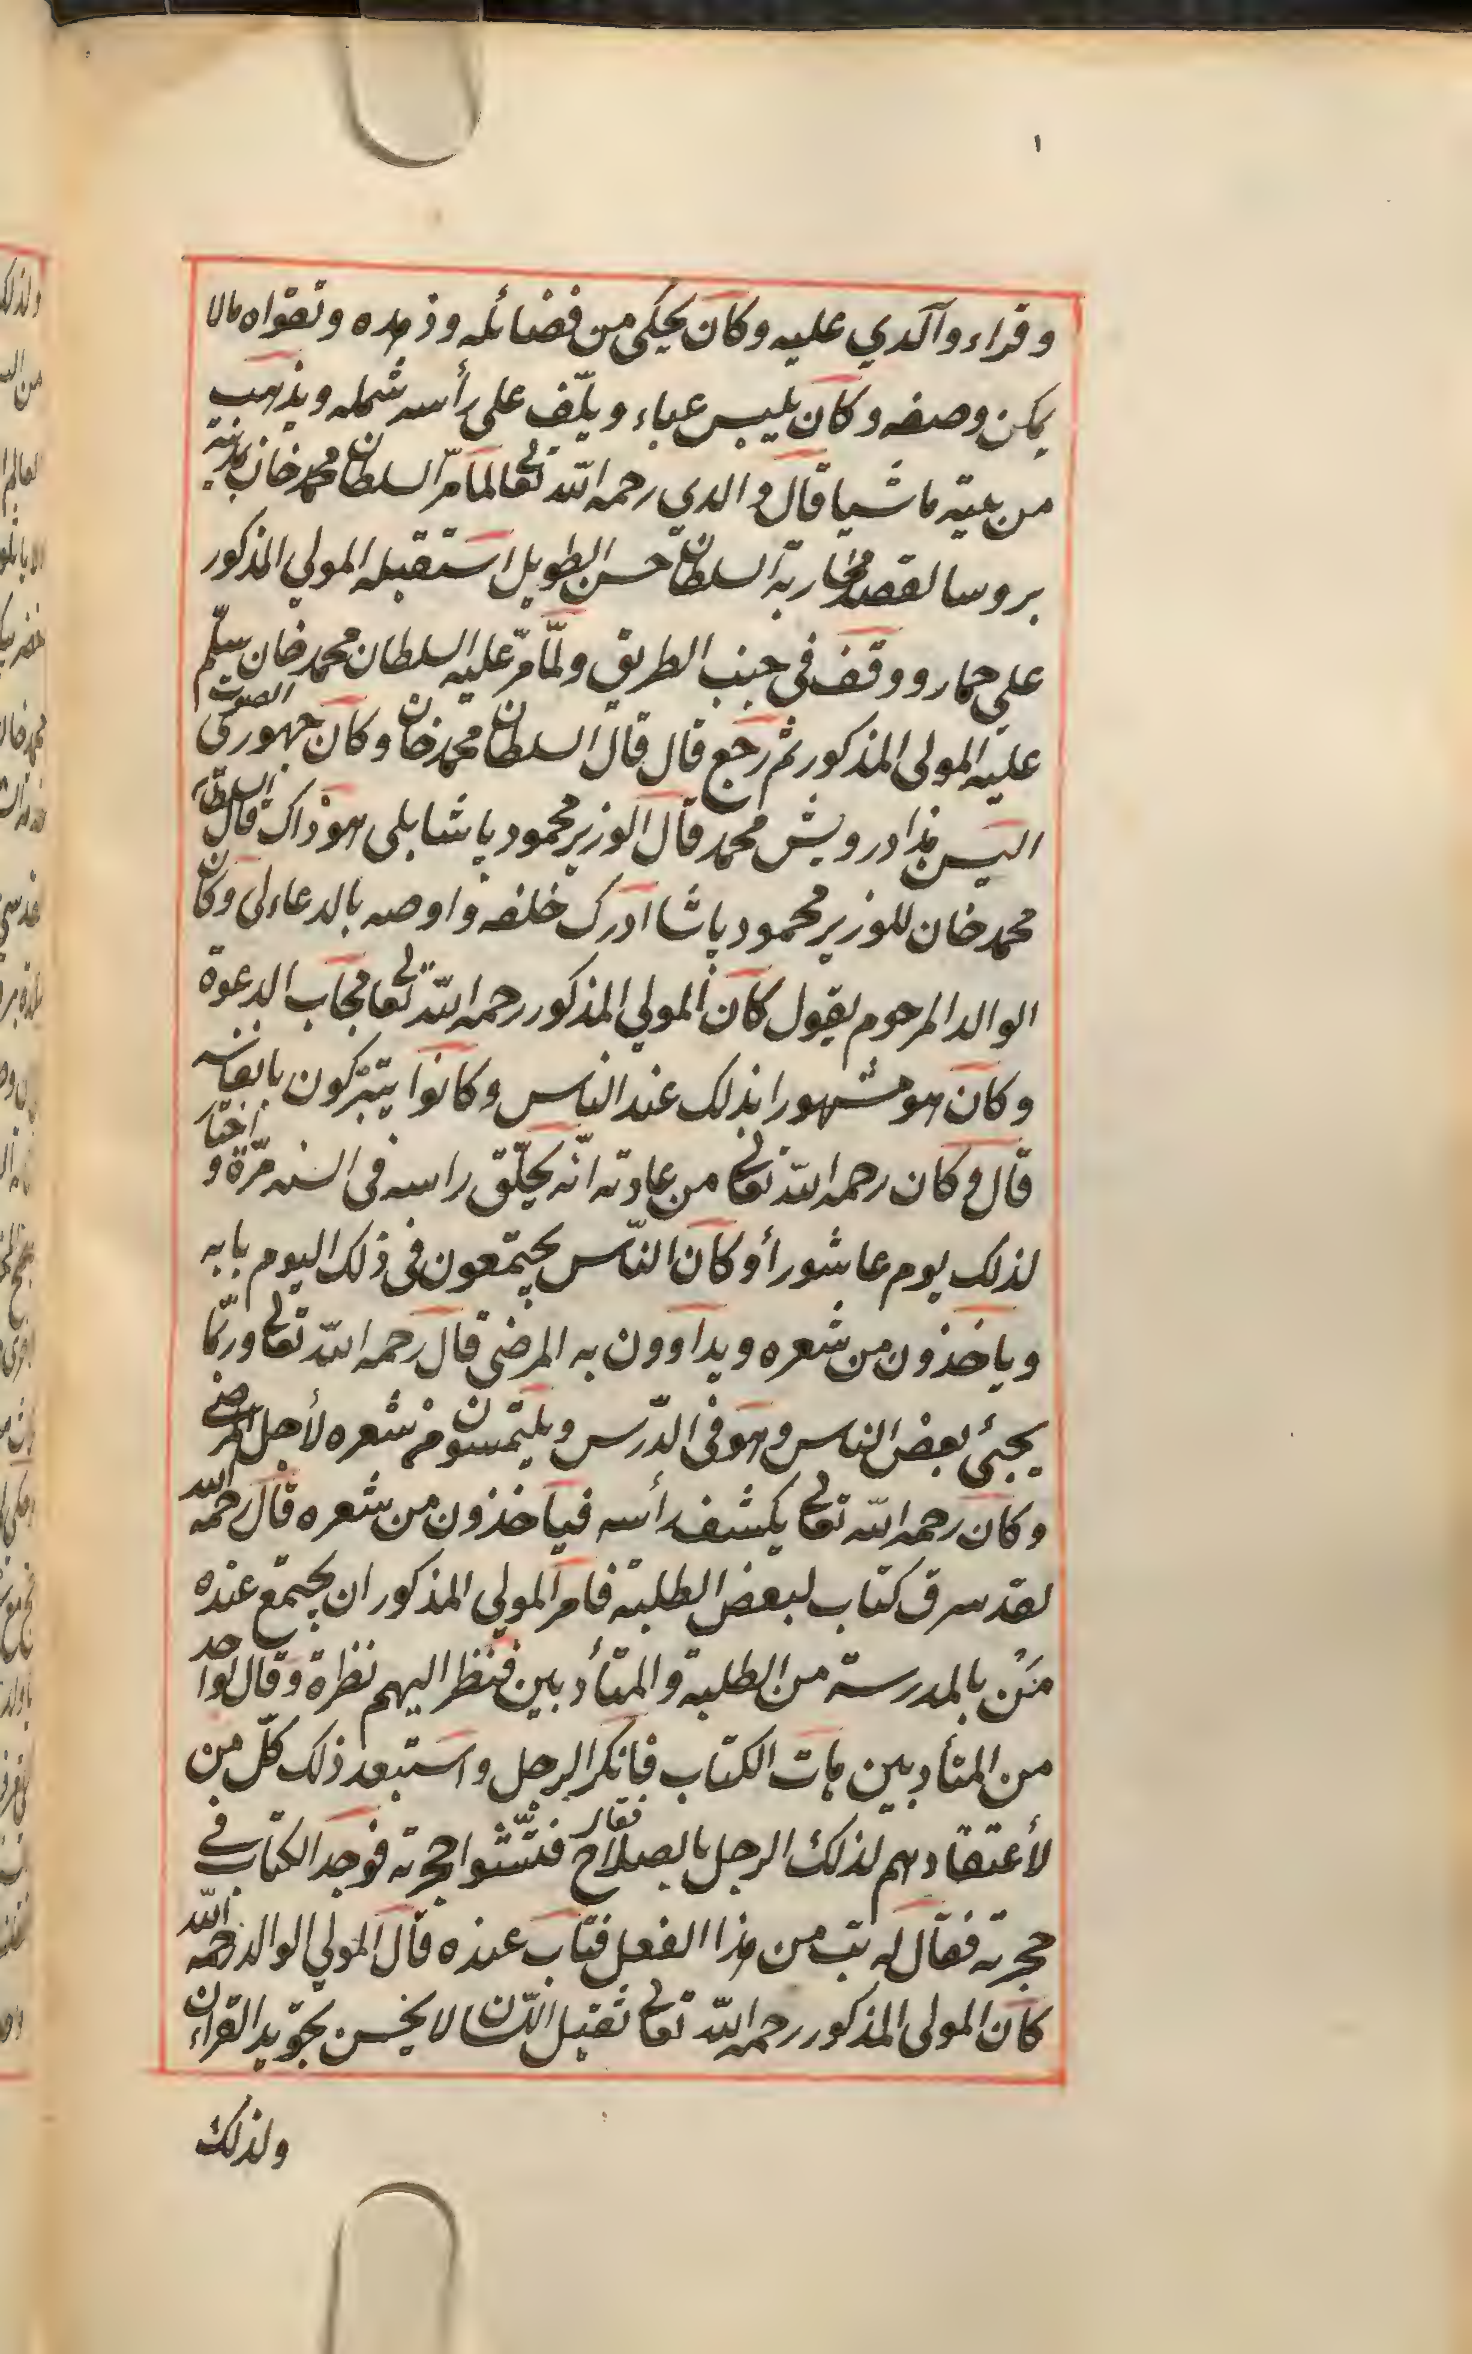 ١
وقراء والدي عليه وكان يحكى من فضائله وزهده وتقواه مالا
يمكن وصفه وكان يلبس عباء ويلّف على رأسه شمله ويذهب
من بيته ماشيا قال والدي رحمه الله تعالى لما مرّ السلطان محمد خان بمدينة
بروسا لقصد محاربة السلطان حسن الطويل استقبله المولي المذكور
علي حمار ووقف في جنب الطريق ولمّا مرّ عليه السلطان محمد خان سلّم
عليه المولى المذكور ثم رجع قال قال السلطان محمد خان وكان جهوري الصوت
اليس هذا درويش محمد قال الوزير محمود پاشا بلى هو ذاك قال السلطان
محمد خان للوزير محمود پاشا ادرك خلفه واوصه بالدعاء لى وكان
الوالد المرحوم يقول كان المولي المذكور رحمه الله تعالى مجاب الدعوة
وكان هو مشهورا بذلك عند الناس وكانوا يتبركون بانفاسه
قال وكان رحمه الله تعالى من عادته انّه يحلّق راسه في السنه مرّة و اختار
لذلك يوم عاشورأ وكان النّاس يجتمعون في ذلك اليوم بابه
وياخذون من شعره ويداوون به المرضى قال رحمه الله تعالى وربّما
يجئ بعض الناس وهو في الدّرس ويلتمسون من شعره لأجل المرضى
وكان رحمه الله تعالى يكشف رأسه فياخذون من شعره قال رحمه الله
لقد سرق كتاب لبعض الطلبة فامر المولي المذكور ان يجتمع عنده
مَنْ بالمدرسة من الطلبة والمتأدبين فنظر اليهم نظرة وقال لواحد
من المتأدبين هات الكتاب فانكر الرجل واستبعد ذلك كلّ من
لأعتقادهم لذلك الرجل بالصلاح فقال فتّشوا حجرته فوجد الكتاب في
حجرته فقال له تب من هذا الفعل فتاب عنده قال المولي الوالد رحمه الله
كان المولى المذكور رحمه الله تعالى ثقيل اللسان لا يحسن تجويد القران
ولذلك